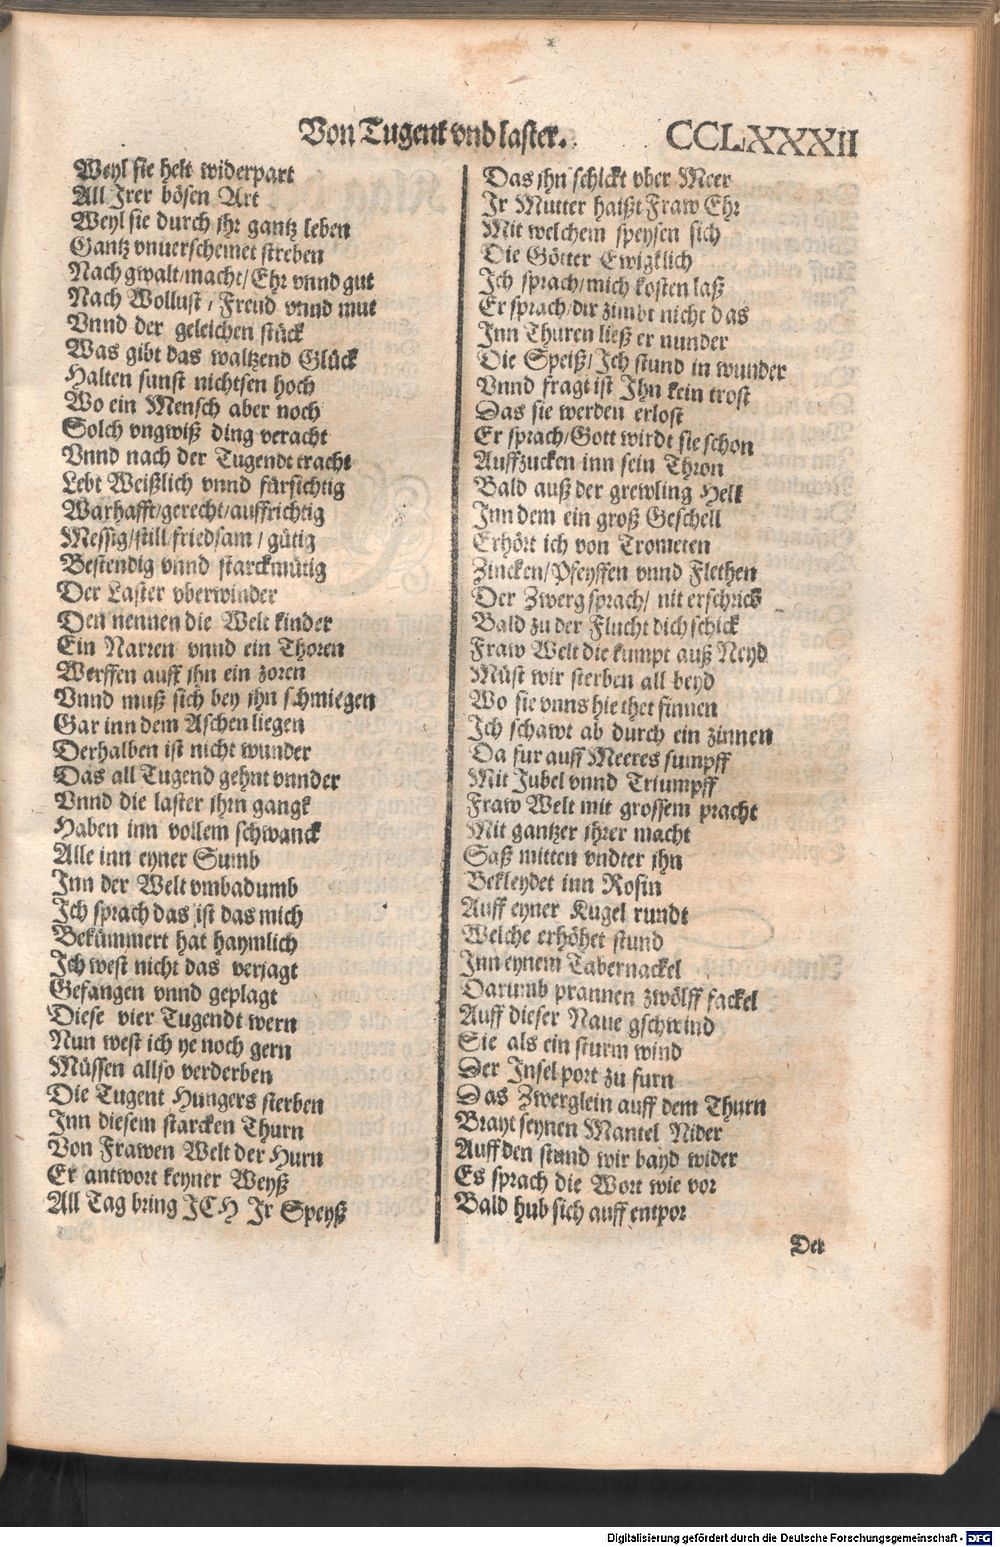 Von Tugent vnd laster.
CCLXXXII
Weyl sie helt widerpart
All Jrer bösen Art
Weyl sie durch jhr gantz leben
Gantz vnuerschemet streben
Nach gwalt/macht/Ehr vnnd gut
Nach Wollust/Freud vnnd mut
Vnnd der geleichen stück
Was gibt das waltzend Glück
Halten sunst nichtsen hoch
Wo ein Mensch aber noch
Solch vngwiß ding veracht
Vnnd nach der Tugendt tracht
Lebt Weißlich vnnd fürsichtig
Warhafft/gerecht/auffrichtig
Messig/still/friedsam/gütig
Bestendig vnnd starckmütig
Der Laster vberwinder
Den nennen die Welt kinder
Ein Narren vnnd ein Thoren
Werffen auff jhn ein zoren
Vnnd muß sich bey jhn schmiegen
Gar inn dem Aschen liegen
Derhalben ist nicht wunder
Das all Tugend gehnt vnnder
Vnnd die laster jhrn gangk
Haben inn vollem schwanck
Alle inn eyner Sumb
Inn der Welt vmbadumb
Ich sprach das ist das mich
Bekümmert hat haymlich
Ich west nicht das verjagt
Gefangen vnnd geplagt
Diese vier Tugendt wern
Nun west ich ye noch gern
Müssen allso verderben
Die Tugent Hungers sterben
Inn diesem starcken Thurn
Von Frawen Welt der Hurn
Er antwort keyner Weyß
All Tag bring JCH Jr Speyß
Das jhn schickt vber Meer
Ir Mutter haißt Fraw Ehr
Mit welchem speysen sich
Die Götter Ewigklich
Ich sprach/mich kosten laß
Er sprach/dir zimbt nicht das
Inn Thuren ließ er nunder
Die Speiß/Ich stund in wunder
Vnnd fragt ist Jhn kein trost
Das sie werden erlost
Er sprach/Gott wirdt sie schon
Auffzucken inn sein Thron
Bald auß der grewling Hell
Inn dem ein groß Geschell
Erhört ich von Trometen
Zincken/Pfeyffen vnnd Flethen
Der Zwerg sprach/ nit erschrick
Bald zu der Flucht dich schick
Fraw Welt die kumpt auß Neyd
Müst wir sterben all beyd
Wo sie vnns hie thet finnen
Ich schawt ab durch ein zinnen
Da fur auff Meeres sumpff
Mit Jubel vnnd Triumpff
Fraw Welt mit grossem pracht
Mit gantzer jhrer macht
Saß mitten vndter jhn
Bekleydet inn Rosin
Auff eyner Kugel rundt
Welche erhöhet stund
Inn eynem Tabernackel
Darumb prannen zwölff fackel
Auff dieser Naue gschwind
Sie als ein sturm wind
Der Insel port zu furn
Das Zwerglein auff dem Thurn
Brayt seynen Mantel Nider
Auff den stund wir bayd wider
Es sprach die Wort wie vor
Bald hub sich auff entpor
Der
Digitalisierung gefördert durch die Deutsche Forschungsgemeinschaft - DFG